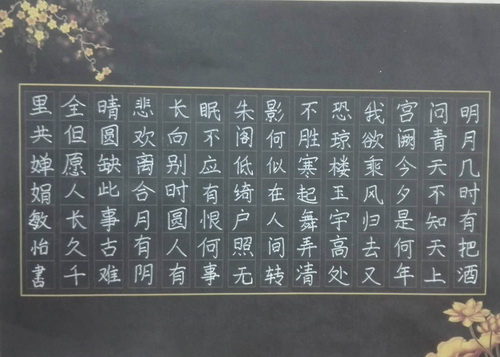 明月几时有把酒
问青天不知天上
宫阙今夕是何年
我欲乘风归去又
恐琼楼玉宇高处
不胜寒起舞弄清
影何似在人间转
朱阁低绮户照无
眠不应有恨何事
长向别时圆人有
悲欢离合月有阴
晴圆缺此事古难
全但愿人长久千
里共婵娟敏怡書